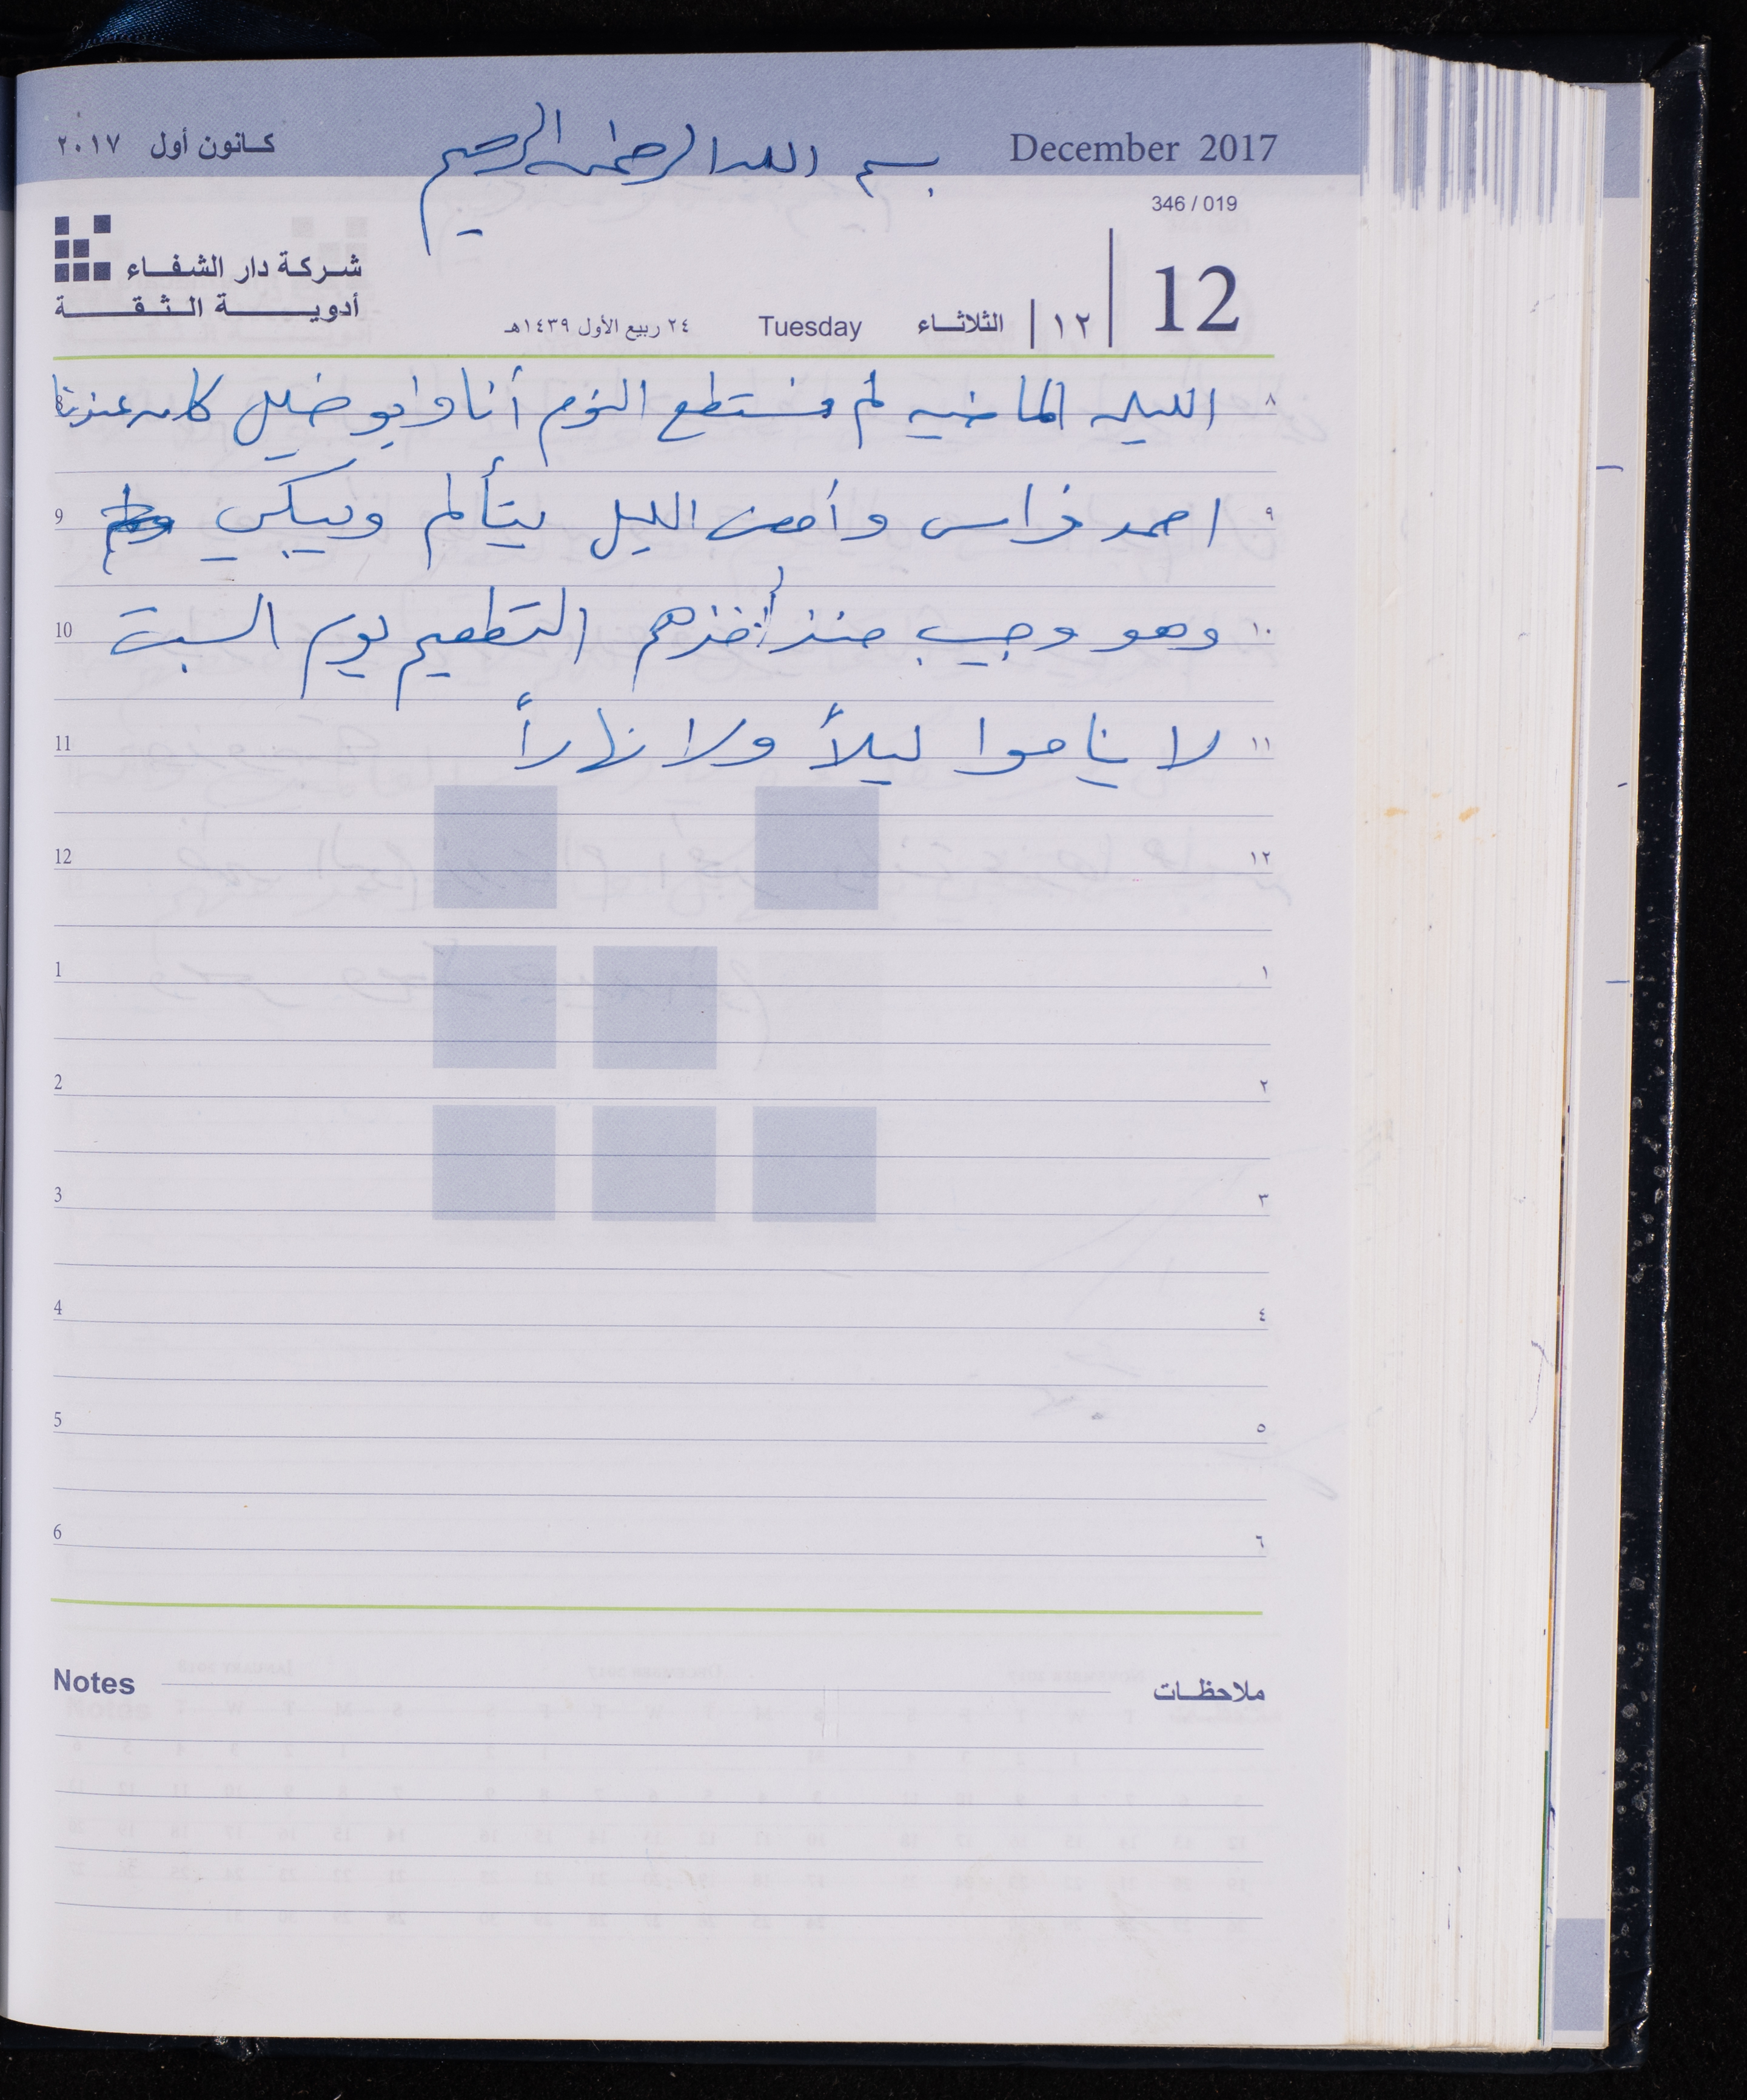 كانون أول ٢٠١٧
بسم الله الرحمن الرحيم
December 2017
346 / 019
شركة دار الشفاء
أدوية الثقة
12
١٢
الثلاثاء
Tuesday
٢٤ ربيع الأول ١٤٣٩هـ
٨ الليله الماضيه لم نستطع النوم أنا وابو خليل كان عندنا 8
٩ احمد فراس وأمضى الليل يتألم ويبكي 9
١٠ وهو وجيب منذ أخذهم التطعيم يوم السبت 10
١١ لا يناموا ليلاً ولا نهاراً 11
١٢ 12
١ 1
٢ 2
٣ 3
٤ 4
٥ 5
٦ 6
Notes ملاحظات